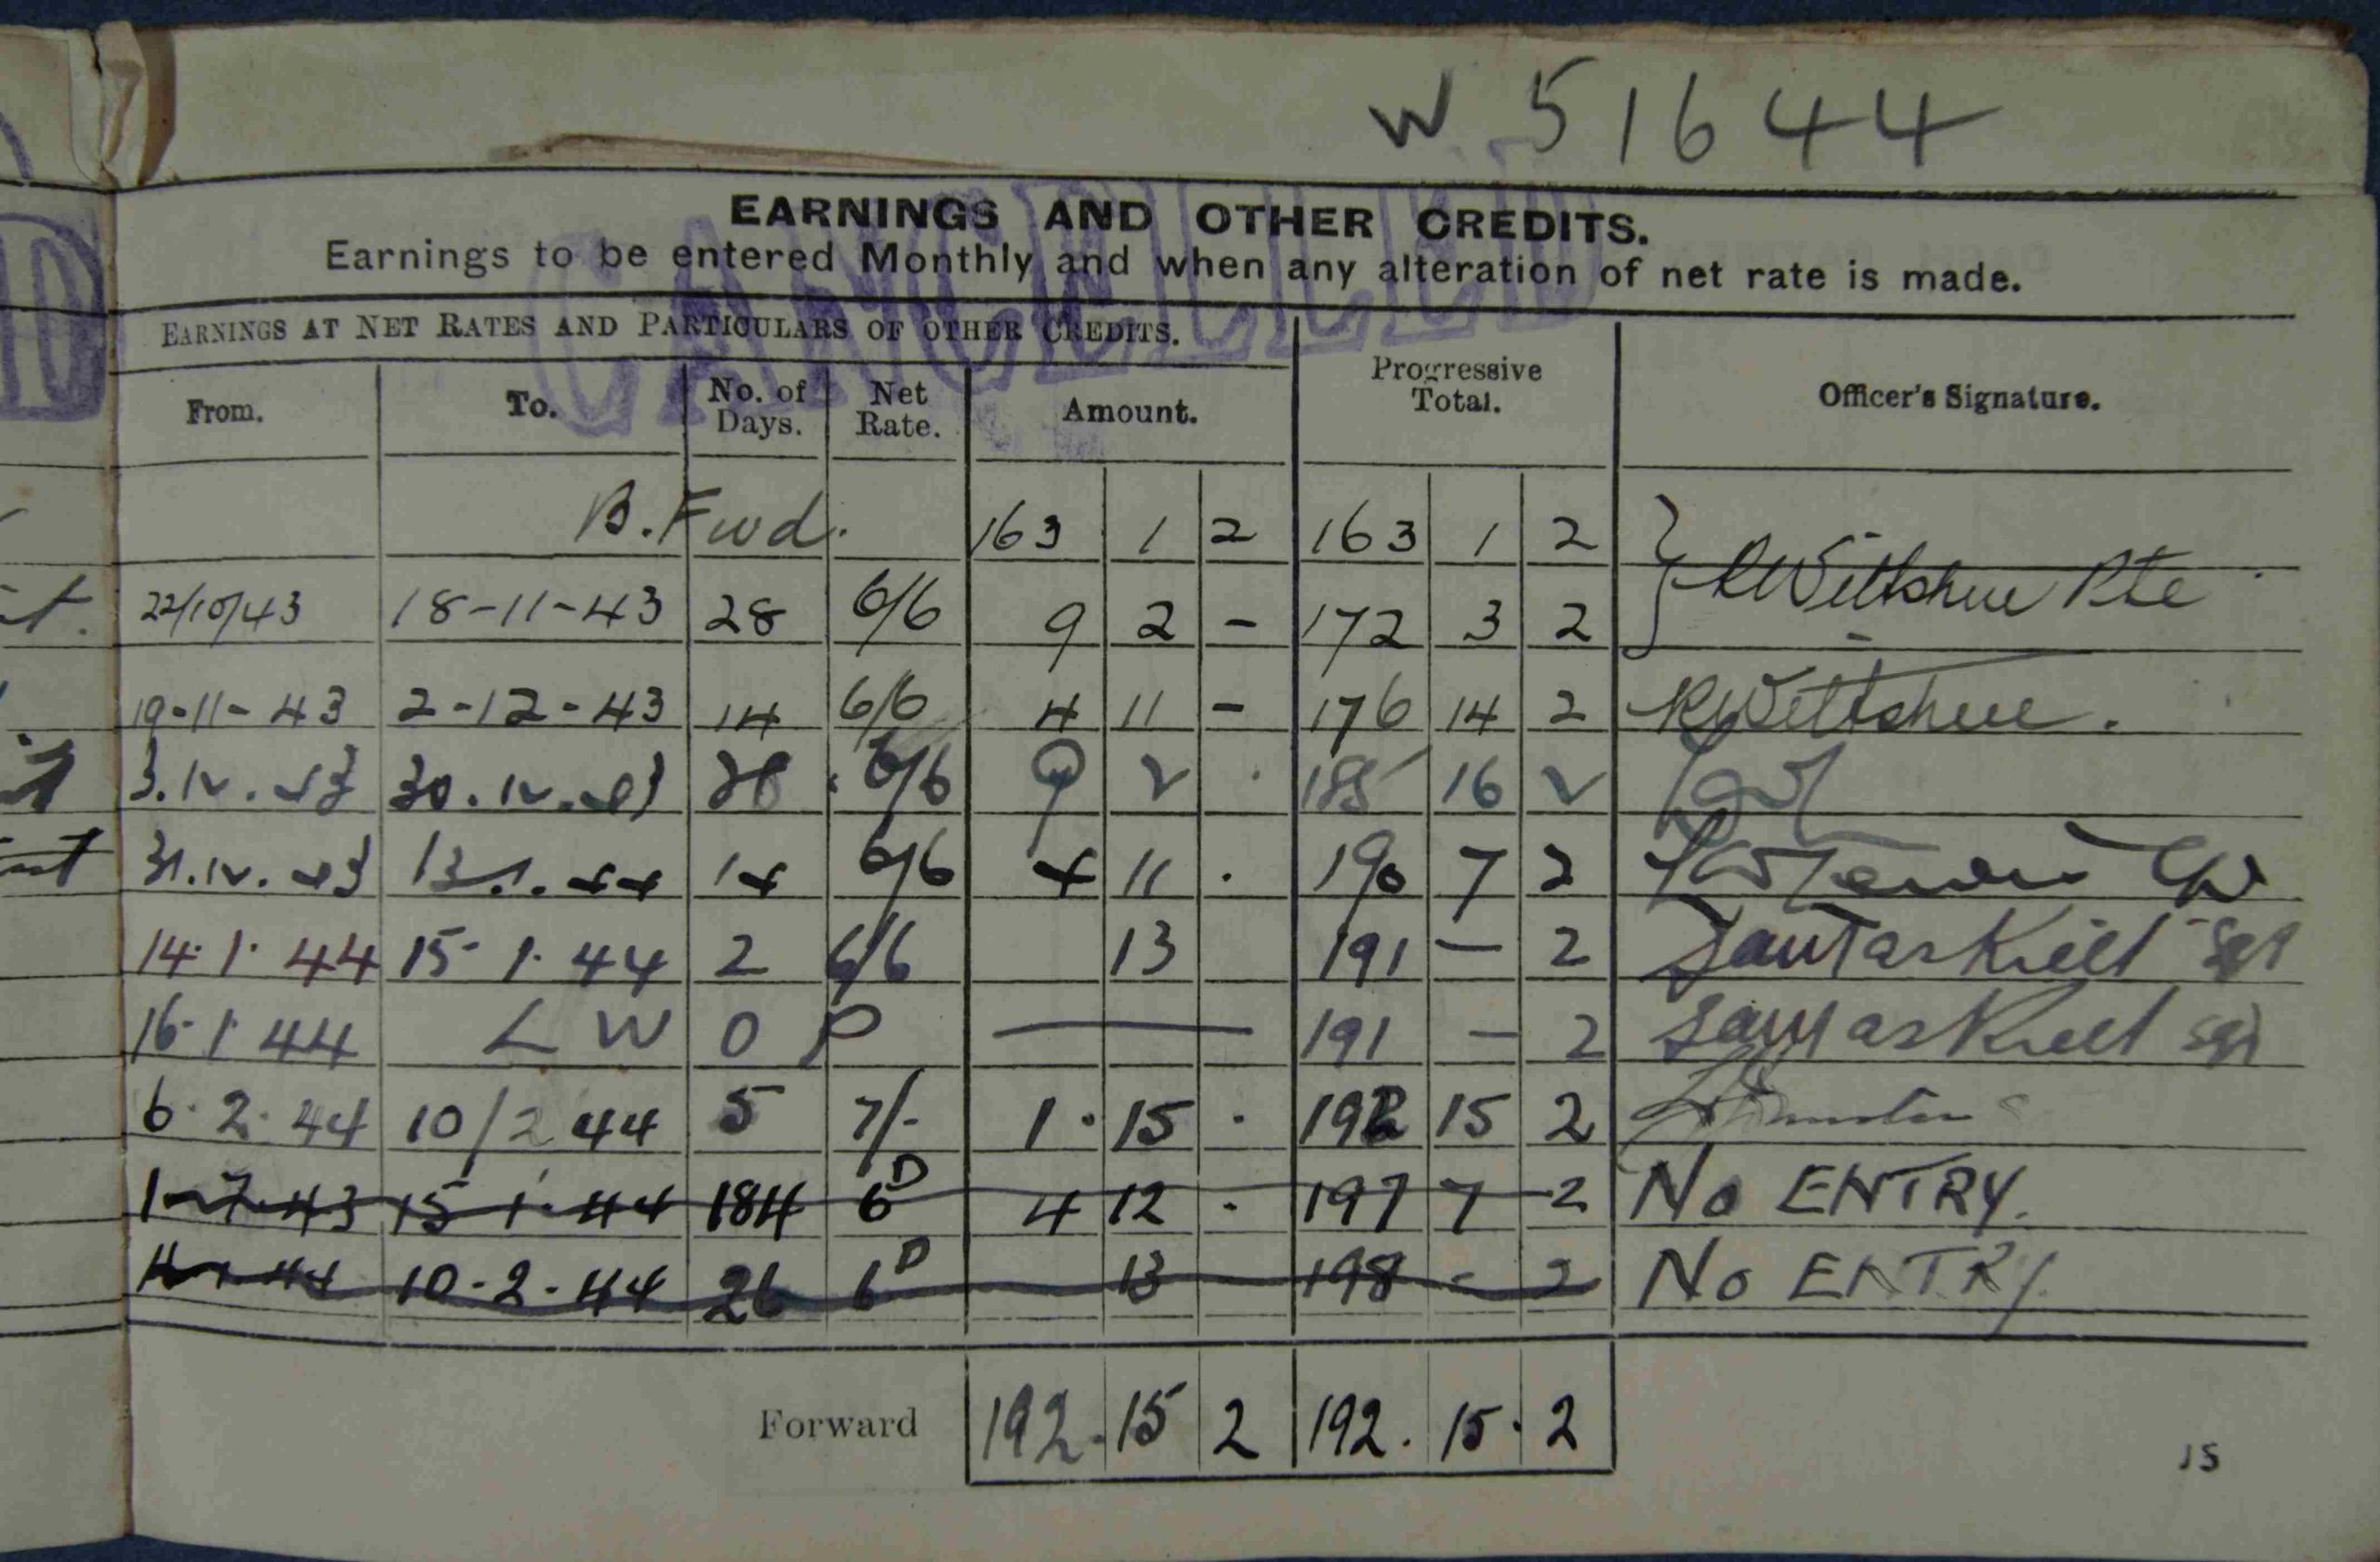 W 51644
EARNINGS AND OTHER CREDITS.
Earnings to be entered Monthly and when any alteration of net rate is made.
CANCELLED
EARNINGS AT NET RATES AND PARTICULARS OF OTHER CREDITS.
From. To. No. of Days. Net Rate. Amount. Progressive Total. Officer's Signature.
B. Fwd. 163 1 2 163 1 2
22/10/43 18-11-43 28 6/6 9 2 - 172 3 2 RWiltshire Pte
19-11-43 2-12-43 14 6/6 4 11 - 176 14 2 RWiltshire.
3.12.43 30.12.43 28 6/6 9 2 . 185 16 2
31.12.43 13.1.44 14 6/6 4 11 . 190 7 2
14.1.44 15-1.44 2 6/6 13 191 - 2 Sgt
16.1.44 L W O P — 191 - 2 Sgt
6.2.44 10/2 44 5 7/- 1.15. 192 15 2
1-7-43 15-1-44 184 6D 4 12 - 197 7 2 NO ENTRY.
10-2-44 26 6D 13 198 - 2 NO ENTRY.
Forward 192.15 2 192.15.2
15